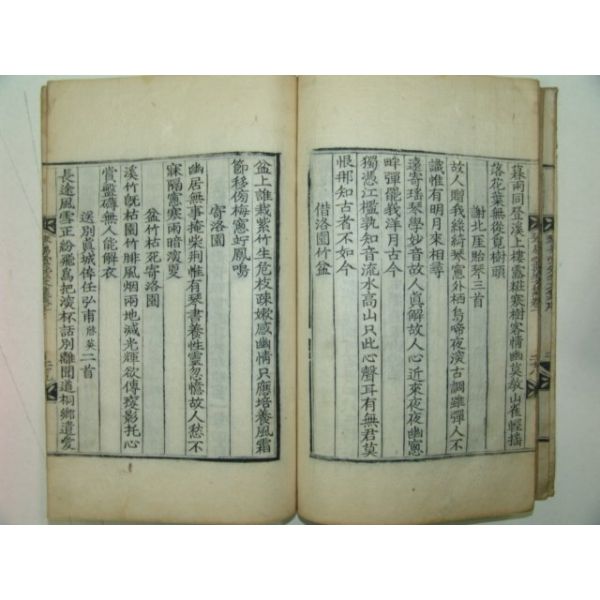 蘇雨同登溪上樓露粧寒樹客情幽莫教山雀輕搖
落花葉無從覓樹頭
謝北厓貽琴三首
故人贈我綠綺琴窓外栖烏啼夜深古調雖彈人不
識惟有明月來相尋
遠寄瑤琴學妙音故人眞解故人心近來夜夜幽窓
畔彈罷我洋月古今
獨憑江檻孰知音流水高山只此心聲耳有無君莫
恨那知古者不如今
借洛園竹盆
盆上誰栽紫竹生危枝疎嫩感幽情只應培養風霜
節移傍梅窓聽鳳鳴
寄洛園
幽居無事掩柴荆惟有琴書養性靈忽憶故人愁不
寐陽窓寒雨暗濱更
盆竹枯死寄洛園
溪竹旣枯園竹腓風烟兩地减光輝欲傳瘦影托心
賞盤礴無人能解衣
送別眞城倅任弘甫 二首
長途風雪正紛飛爲把深杯話別離聞道桐鄉遺愛